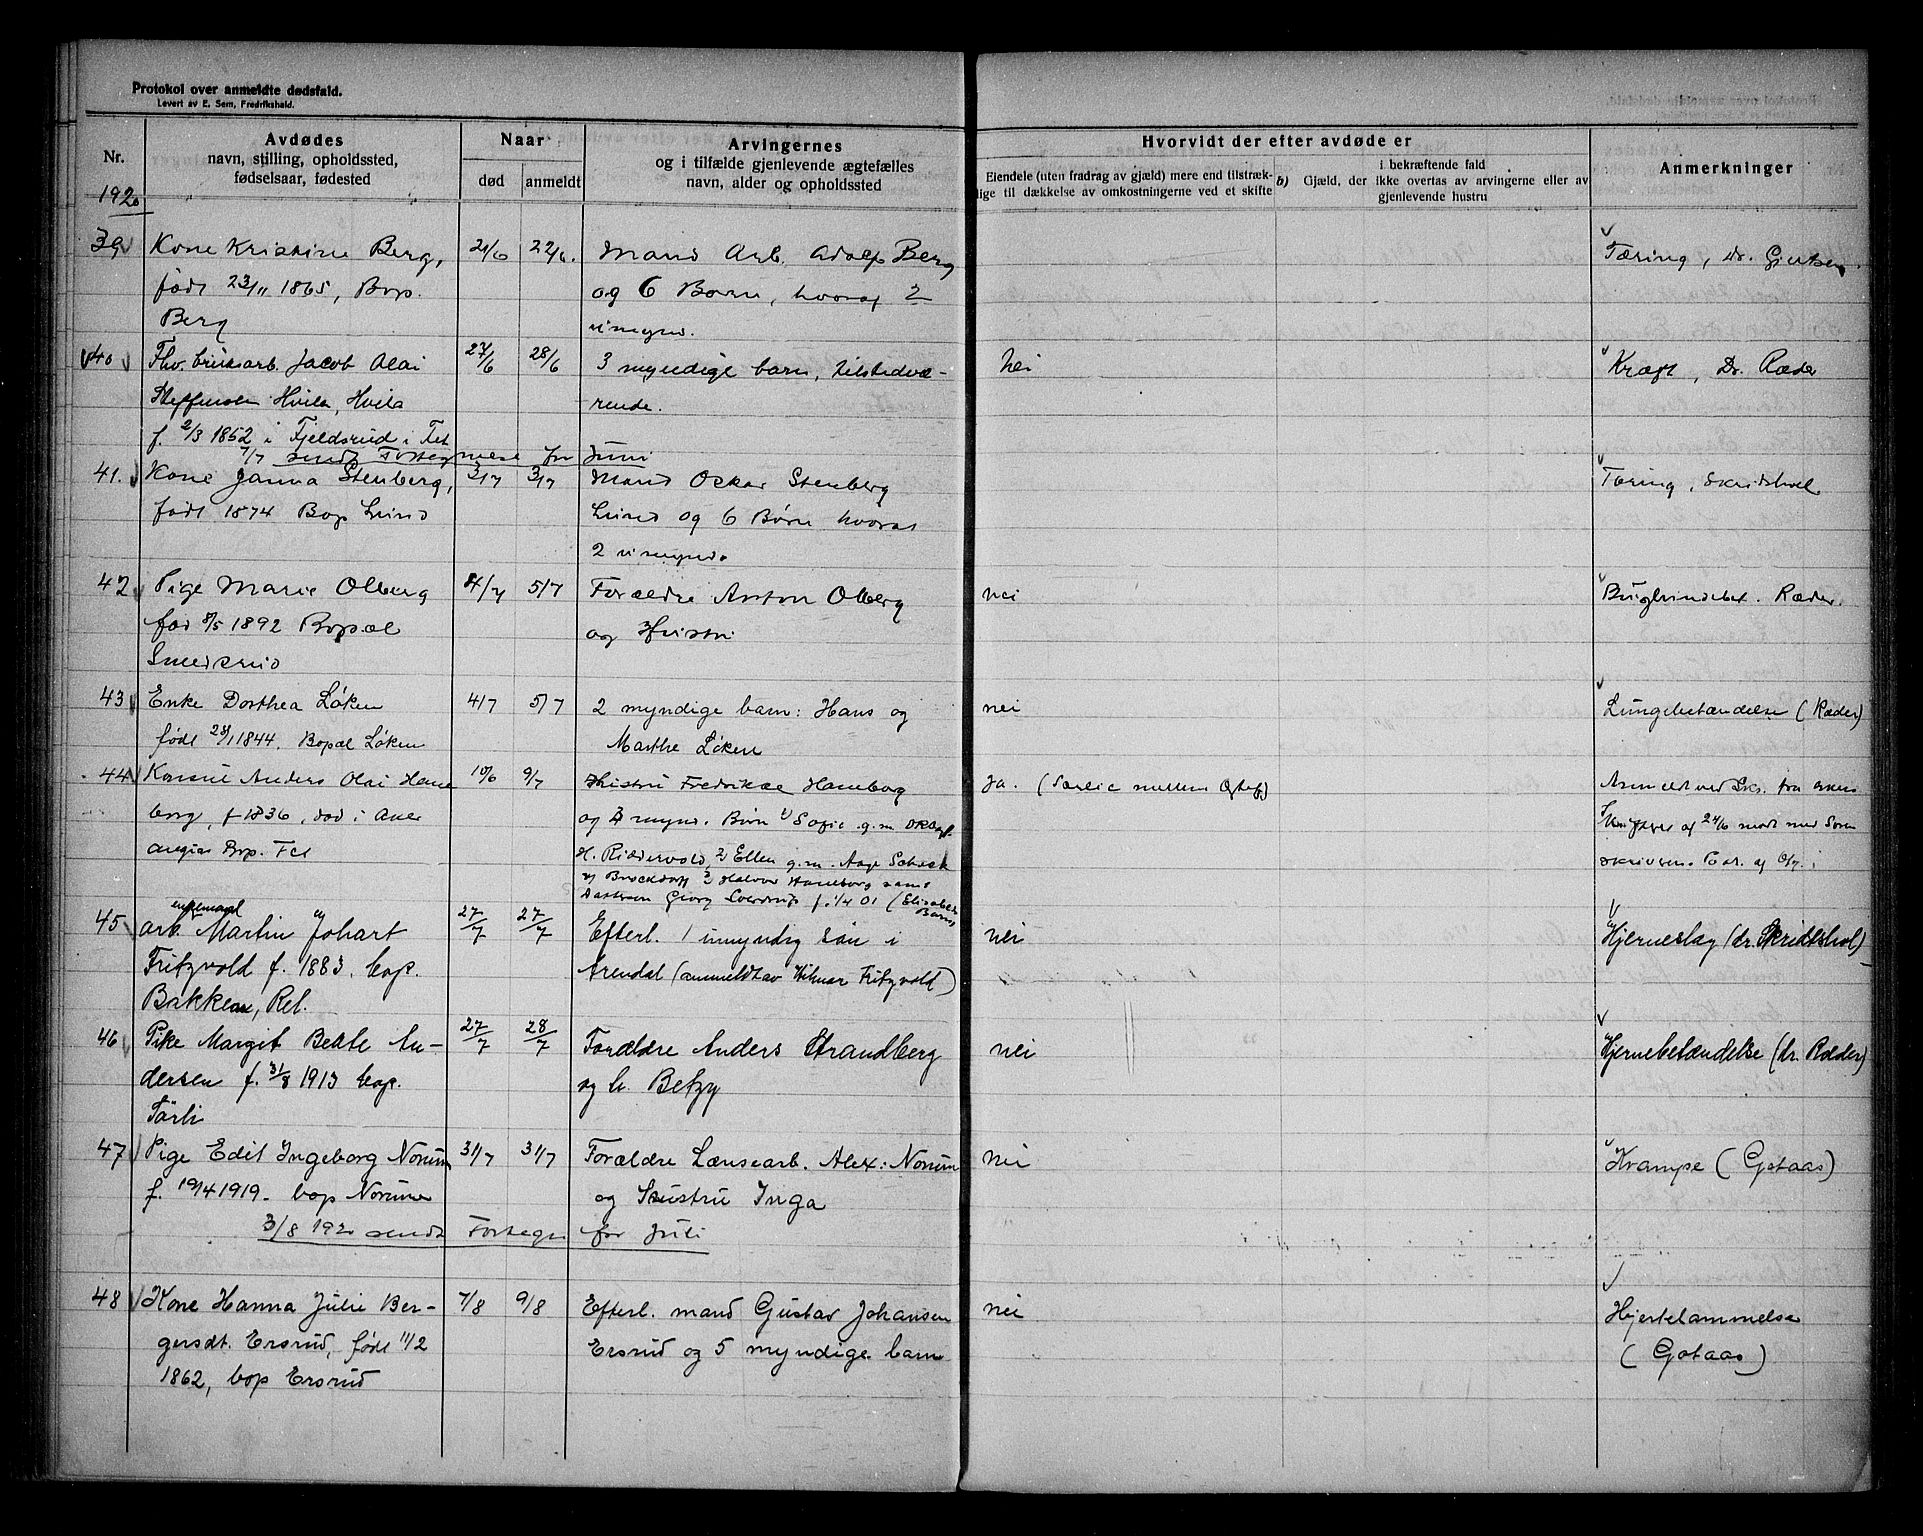 Protokol over anmeldte dødsfald.
Levert av E. Sem, Fredrikshald.
Nr.
Avdødes
navn, stilling, opholdssted,
fødselsaar, fødested
Naar
død
anmeldt
Arvingernes
og i tilfælde gjenlevende ægtefælles
navn, alder og opholdssted
Hvorvidt der efter avdøde er
Eiendele (uten fradrag av gjæld) mere end tilstræk-
lige til dækkelse av omkostningerne ved et skifte
b) Gjæld, der i bekræftende fald
ikke overtas av arvingerne eller av
gjenlevende hustru
Anmerkninger
1920
39 Kone Kristine Berg, 21/6 22/6. Mand Arb. Adolf Berg Tæring, Dr.
født 23/11 1865, Bop. og 6 Børn, hvoraf 2
Berg umynd.
40 Fhv. bruksarb. Jacob Olai 27/6 28/6 3 myndige barn, tilstedvæ- nei Kræft, Dr. Ræder
Steffensen Hvila, Hvila rende.
f. 2/3 1852 i Fjeldsrud i Fet
7/7 sendt Fortegnelse for Juni
41. Kone Janna Stenberg, 3/7 3/7 Mand Oskar Stenberg Tæring, Skridshol
født 1874 Bop Lund Lund og 6 Børn hvoraf
2 umynd.
42 Pige Marie Olberg 4/7 5/7 Forældre Anton Olberg nei Bughindebet. Ræder.
fød 8/5 1892 Bopæl og Hustru
Smedsrud
43 Enke Dorthea Løken 4/7 5/7 2 myndige barn: Hans og nei Lungebetændelse (Ræder)
født 23/1 1844. Bopæl Løken Marthe Løken
44 Konsul Anders Olai Hane 10/6 9/7 Hustru Fredrikke Haneborg Ja. (Særeie mellem Ægtef) Anmeldt ved Skr. fra
borg, f 1836, død i Aker og 4 mynd. Børn 1) Sofie g.m. af 24/6 modt med Soren
Bop. Fet H. Riddervold, 2 Ellen g.m. Aage Schack skriveren
Brockdorff 3 Halvor Haneborg samt
Dattersøn Georg Sverdrup f. 1/4 01 (Elisabeths Barn)
ungkarl
45 arb. Martin Johart 27/7 27/7 Efterl. 1 umyndig søn i nei Hjerneslag (dr. Skridtshol)
Fritzvold f. 1883. bop. Arendal (anmeldt av Hilmar Fritzvold)
Bakken, Rel.
46 Pike Margit Beate An- 27/7 28/7 Forældre Anders Strandberg nei Hjernebetændelse (dr. Ræder)
dersen f. 31/8 1913 bop. og h. Betzy
Tærli
47 Pige Edit Ingeborg Norum 31/7 31/7 Forældre Lænsearb. Alex: Norum nei Krampe (Gotaas)
f. 19/4 1919 - bop Norum og Hustru Inga
3/8 1920 sendt Fortegn for Juli
48 Kone Hanna Julie Ber- 7/8 9/8 Efterl. mand Gustav Johansen nei Hjertelammelse
gersdt. Ersrud, født 11/2 Ersrud og 5 myndige barn (Gotaas)
1862, bop Ersrud